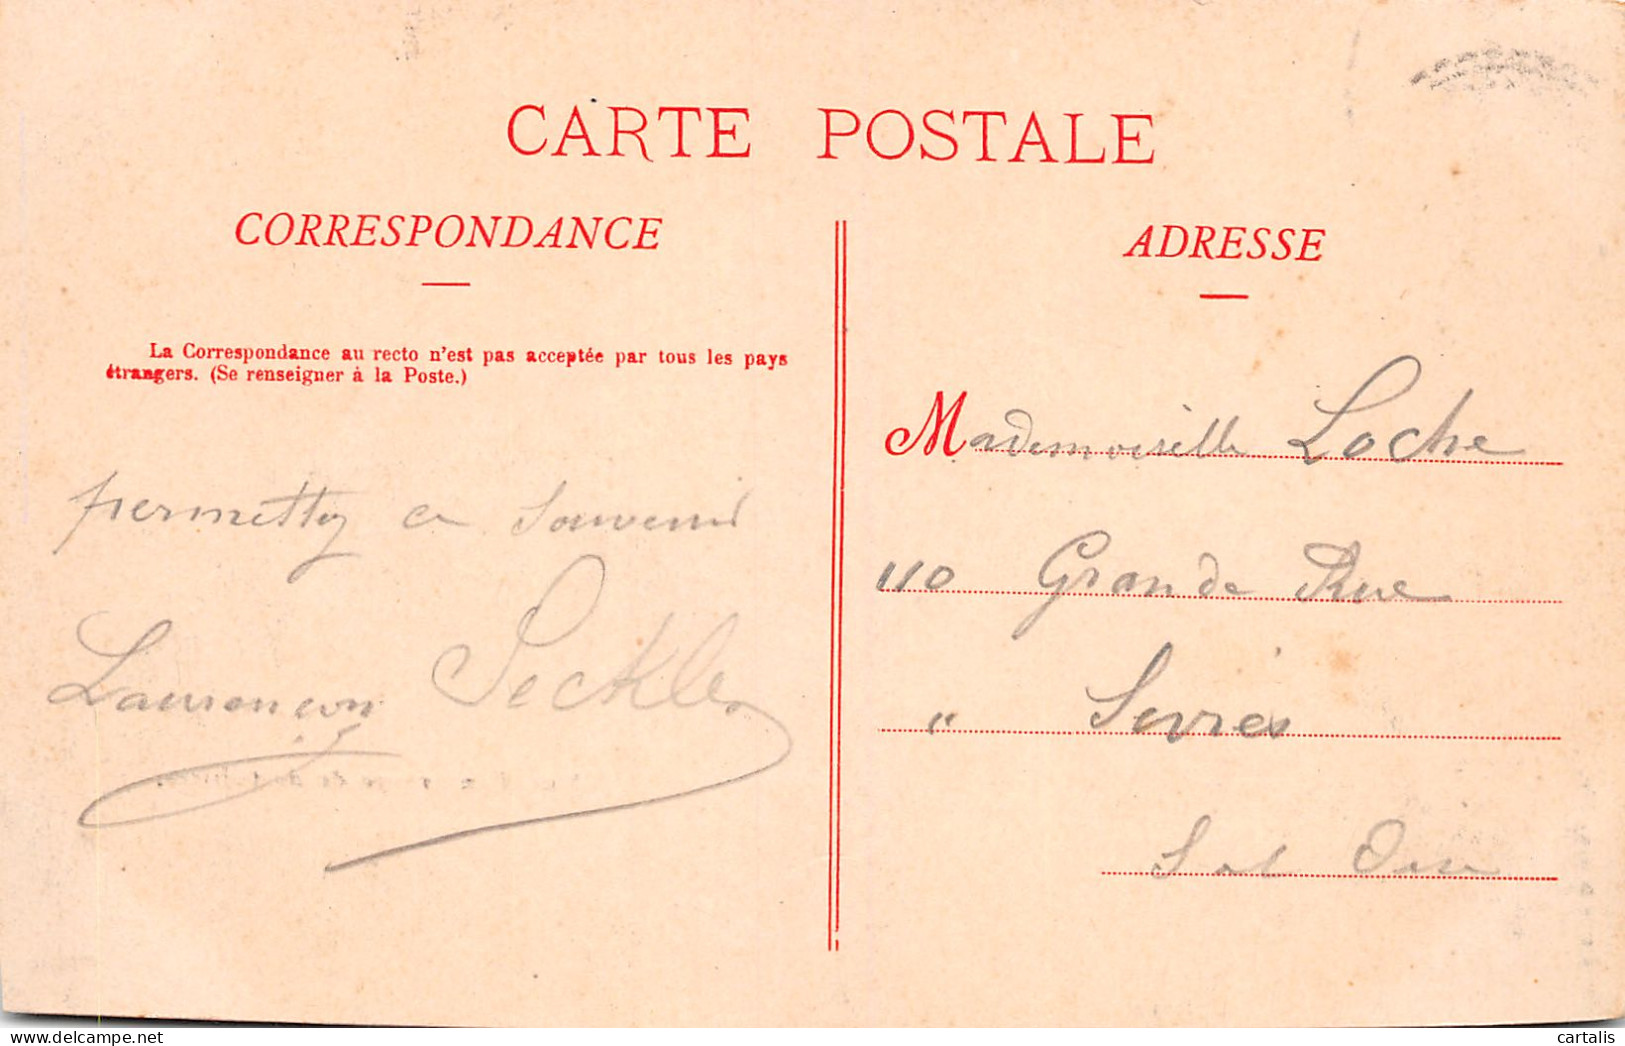 CARTE POSTALE
CORRESPONDANCE
La Correspondance au recto n'est pas acceptée par tous les pays
étrangers. (Se renseigner à la Poste.)
permettez ce souvenir
Seckler
ADRESSE
Mademoiselle Loche
110 Grande Rue
" Sèvres
S et Oise
delcampe.net
cartalis